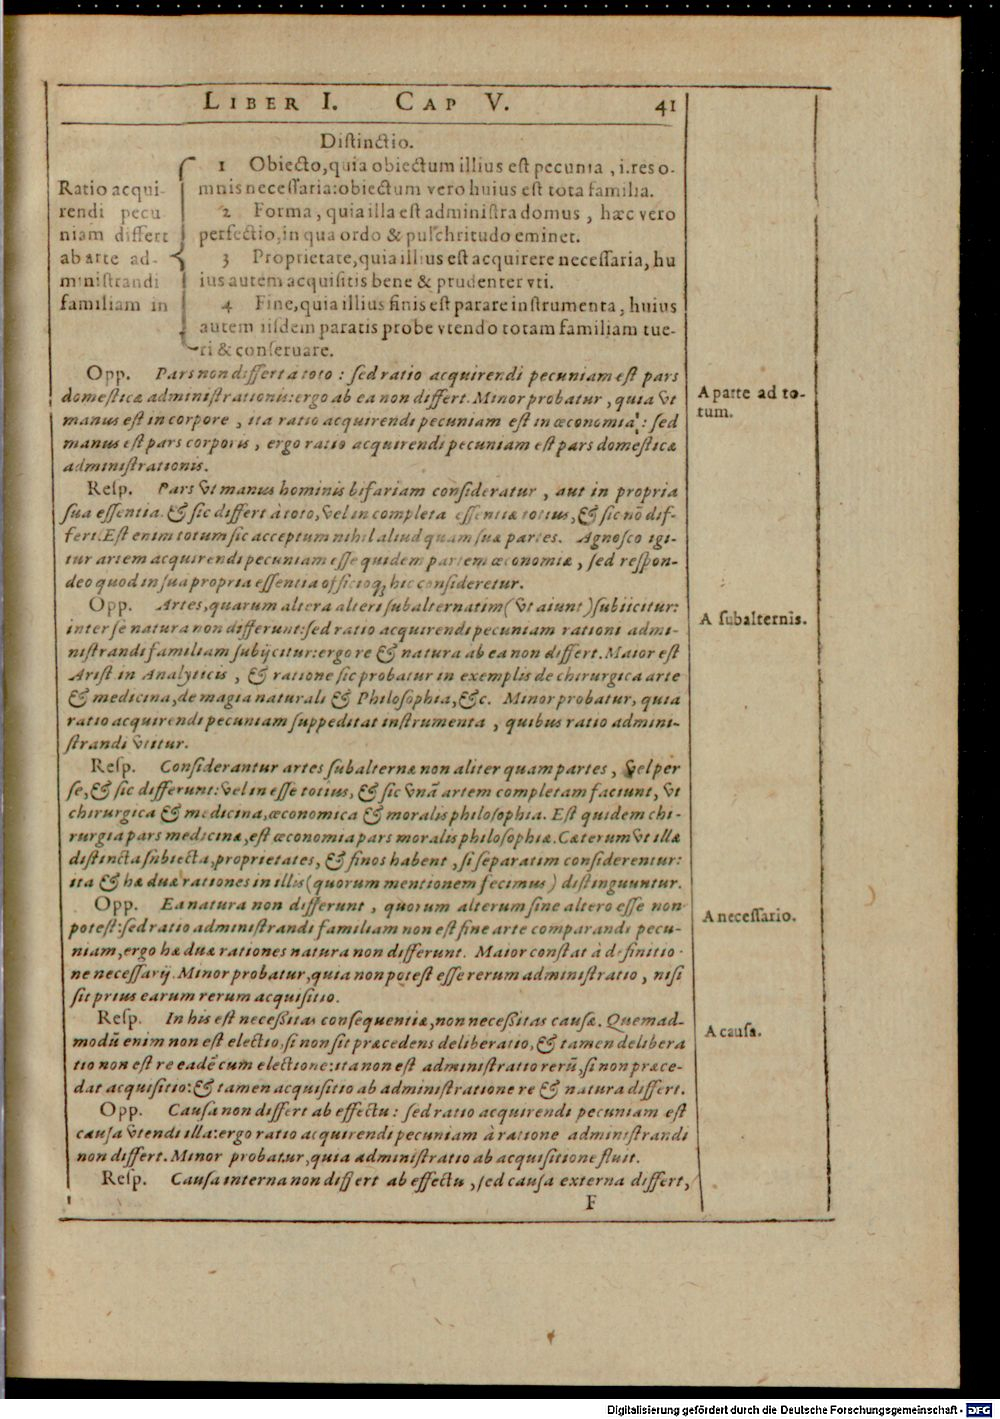 LIBER I. CAP V. 41
Distinctio.
Ratio acqui-
rendi pecu
niam differt
ab arte ad-
ministrandi
familiam in
1 Obiecto, quia obiectum illius est pecunia, i. res o-
mnis necessaria: obiectum vero huius est tota familia.
2 Forma, quia illa est administra domus, hæc vero
perfectio, in qua ordo & pulchritudo eminet.
3 Proprietate, quia illius est acquirere necessaria, hu
ius autem acquisitis bene & prudenter vti.
4 Fine, quia illius finis est parare instrumenta, huius
autem iisdem paratis probe vtendo totam familiam tue-
ri & conseruare.
Opp. Pars non differt a toto: sed ratio acquirendi pecuniam est pars
domesticæ administrationis: ergo ab ea non differt. Minor probatur, quia vt
manus est in corpore, ita ratio acquirendi pecuniam est in œconomia: sed
manus est pars corporis, ergo ratio acquirendi pecuniam est pars domesticæ
administrationis.
A parte ad to-
tum.
Resp. Pars vt manus hominis bifariam consideratur, aut in propria
sua essentia, & sic differt à toto, vel in completa essentia totius, & sic nõ dif-
fert. Est enim totum sic acceptum nihil aliud quam suæ partes. Agnosco igi-
tur artem acquirendi pecuniam esse quidem partem œconomiæ, sed respon-
deo quod in sua propria essentia officioq; hic consideretur.
Opp. Artes, quarum altera alteri subalternatim (vt aiunt) subiicitur:
inter se natura non differunt: sed ratio acquirendi pecuniam rationi admi-
nistrandi familiam subijcitur: ergo re & natura ab ea non differt. Maior est
Arist in Analyticis, & ratione sic probatur in exemplis de chirurgica arte
& medicina, de magia naturali & Philosophia, &c. Minor probatur, quia
ratio acquirendi pecuniam suppeditat instrumenta, quibus ratio admini-
strandi vtitur.
A subalternis.
Resp. Considerantur artes subalternæ non aliter quam partes, vel per
se, & sic differunt: vel in esse totius, & sic vnã artem completam faciunt, vt
chirurgica & medicina, œconomica & moralis philosophia. Est quidem chi-
rurgia pars medicinæ, est œconomia pars moralis philosophiæ. Cæterum vt illæ
distincta subiecta, proprietates, & finos habent, si separatim considerentur:
ita & hæ duæ rationes in illis (quorum mentionem fecimus) distinguuntur.
Opp. Ea natura non differunt, quorum alterum sine altero esse non
potest: sed ratio administrandi familiam non est sine arte comparandi pecu-
niam, ergo hæ duæ rationes natura non differunt. Maior constat à definitio-
ne necessarij. Minor probatur, quia non potest esse rerum administratio, nisi
sit prius earum rerum acquisitio.
A necessario.
Resp. In his est necessitas consequentiæ, non necessitas causæ. Quemad-
modũ enim non est electio, si non sit præcedens deliberatio, & tamen delibera
tio non est re eadẽ cum electione: ita non est administratio rerũ, si non præce-
dat acquisitio: & tamen acquisitio ab administratione re & natura differt.
A causa.
Opp. Causa non differt ab effectu: sed ratio acquirendi pecuniam est
causa vtendi illa: ergo ratio acquirendi pecuniam à ratione administrandi
non differt. Minor probatur, quia administratio ab acquisitione fluit.
Resp. Causa interna non differt ab effectu, sed causa externa differt,
F
Digitalisierung gefördert durch die Deutsche Forschungsgemeinschaft - DFG